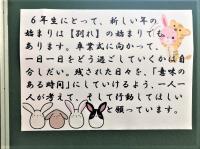 6年生にとって、新しい年の
始まりは【別れ】の始まりでも
あります。卒業式に向かって、
一日一日をどう過ごしていくかは自
分しだい。残された日々を、「意味の
ある時間」にしていけるよう、一人一
人が考えて、そして行動してほしい
と願っています。